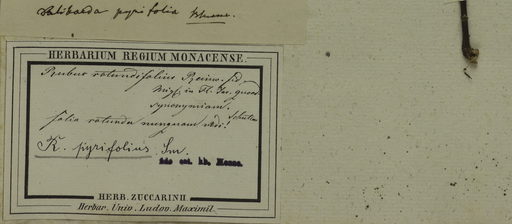 Dalibarda pyrifolia Blume.
HERBARIUM REGIUM MONACENSE.
Rubus rotundifolius Reinw. fid.
Miq. in Fl. Ind. quoad
synonymiam.
folia rotunda nunquam vidi!
R. pyrifolius Sm.
fide est. hb. Monac.
HERB. ZUCCARINII
Herbar. Univ. Ludov. Maximil.